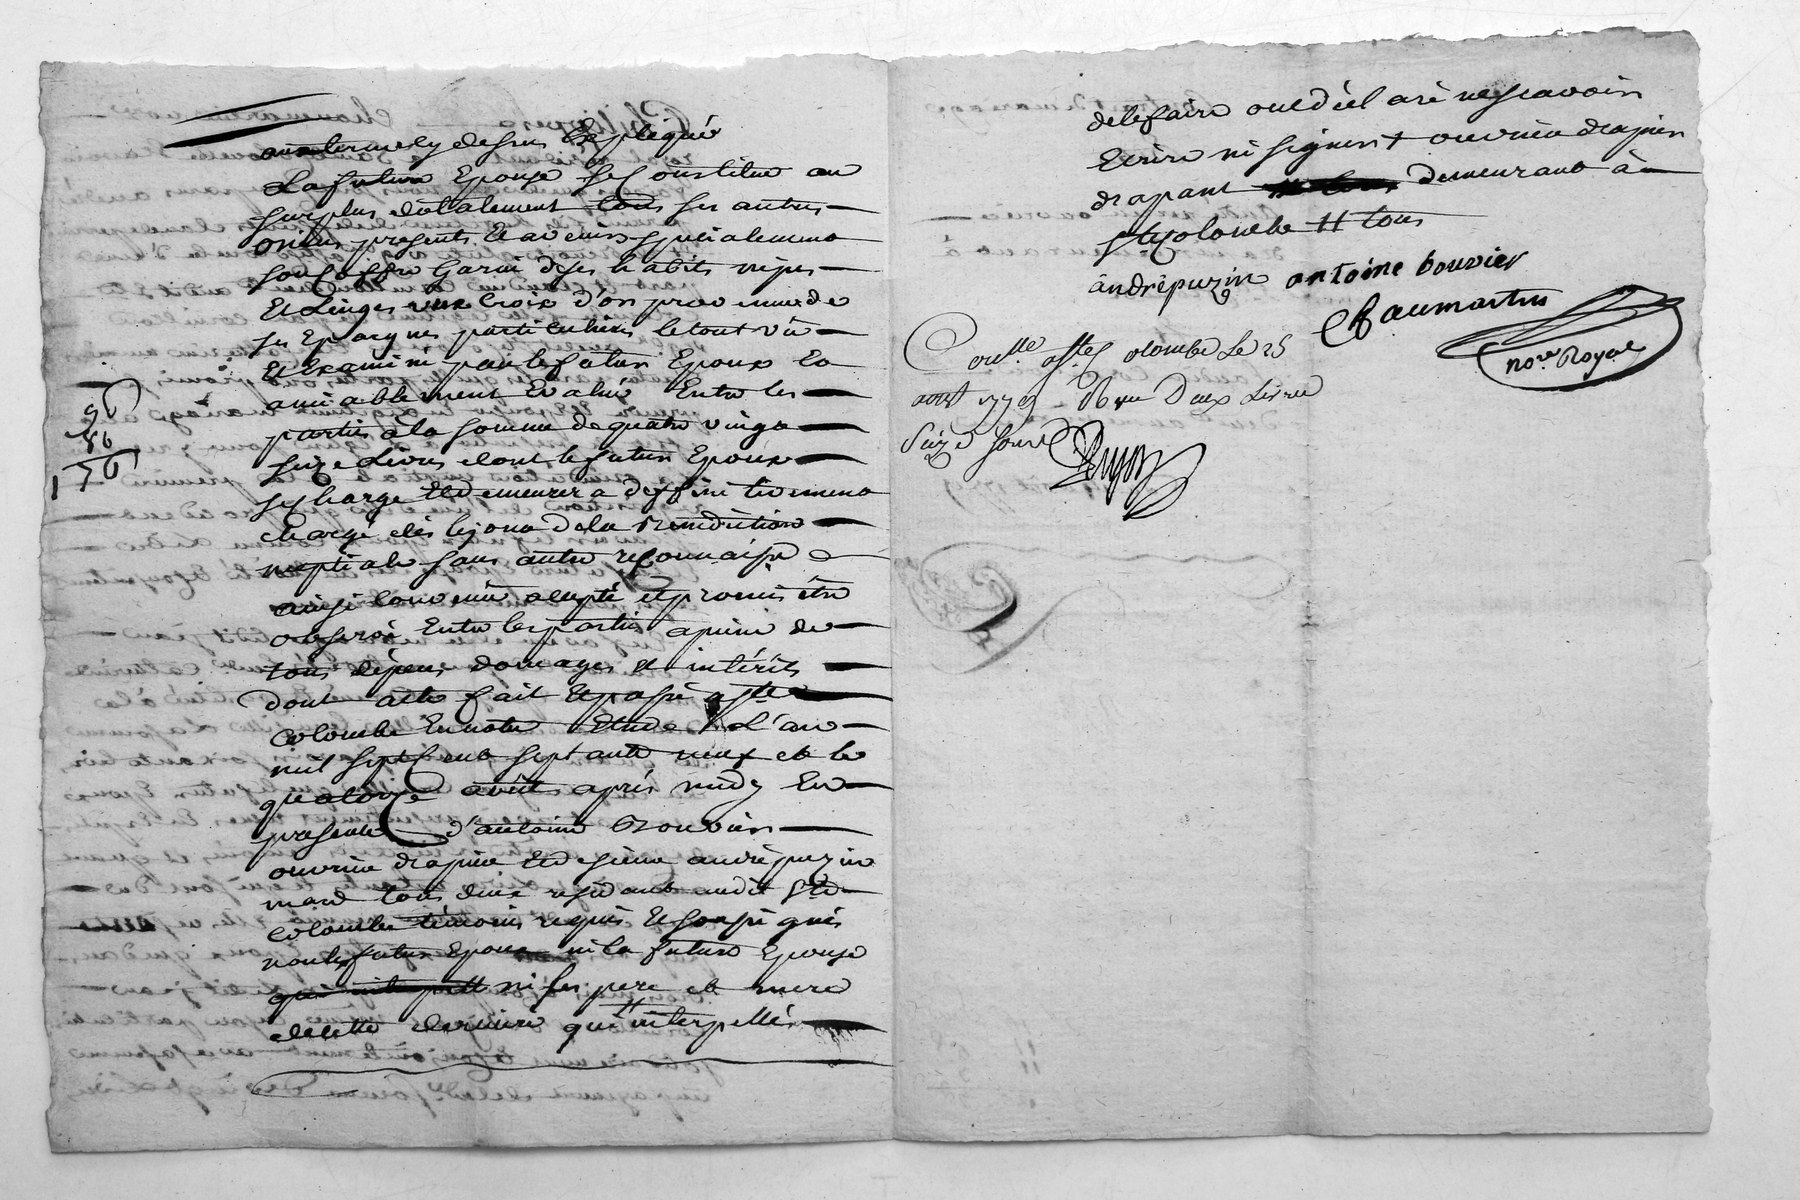 aux termes cy dessus Expliqué
La future Epouse se Constitue au
surplus dotalement tous ses autres
présents Et avenirs spécialement
son Coffre Garni de ses habits nipes
Et Linges une Croix d'or provenus de
ses Epargnes particulieres le tout vu
Et Examiné par le futur Epoux Et
amiablement Evalué Entre les
parties à la somme de quatre vingt
seize Livres dont le futur Epoux
se charge Et demeurera deffinitivement
chargé dès le jour de la Benediction
nuptiale sans autre reconnaissce
ainsi convenu accepté et promis être
observé Entre les parties a peine de
tous dépens domages et intérêts
Dont acte fait Et passé a Ste
Colombe En notre Etude L'an
mil sept Cent septante neuf et le
quatorze août après midy En
presence d'antoine Bouvier
ouvrier drapier Et de sieur andré puzin
mard tous deux residant audit Ste
Colombe témoins requis Et soussignés
non le futur Epoux ni la future Epouse
ni ses pere et mere
de cette derniere qui # interpellés
96
80
176
de le faire ont déclaré ne scavoir
Ecrire ni signer + ouvrier drapier
drapant demeurant à
Ste Colombe # tous
andré puzin antoine bouvier
Chaumartin
nore Royal
Conlle a Ste Colombe Le 25
aout 1779 Reçu Deux Livres
Seize sous